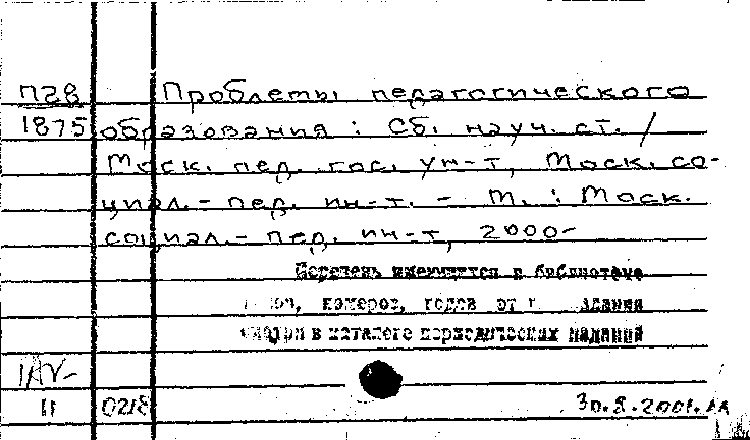 П28 Проблемы педагогического
1875 образования : Сб. науч. ст. /
Моск. пед. гос. ун-т, Моск. со-
циал.- пед. ин-т. - М. : Моск.
социал.- пед. ин-т, 2000-
Перечень имеющихся в библиотеке
номеров, годов от
смотри в каталоге периодических изданий
11 0218 30.8.2001.